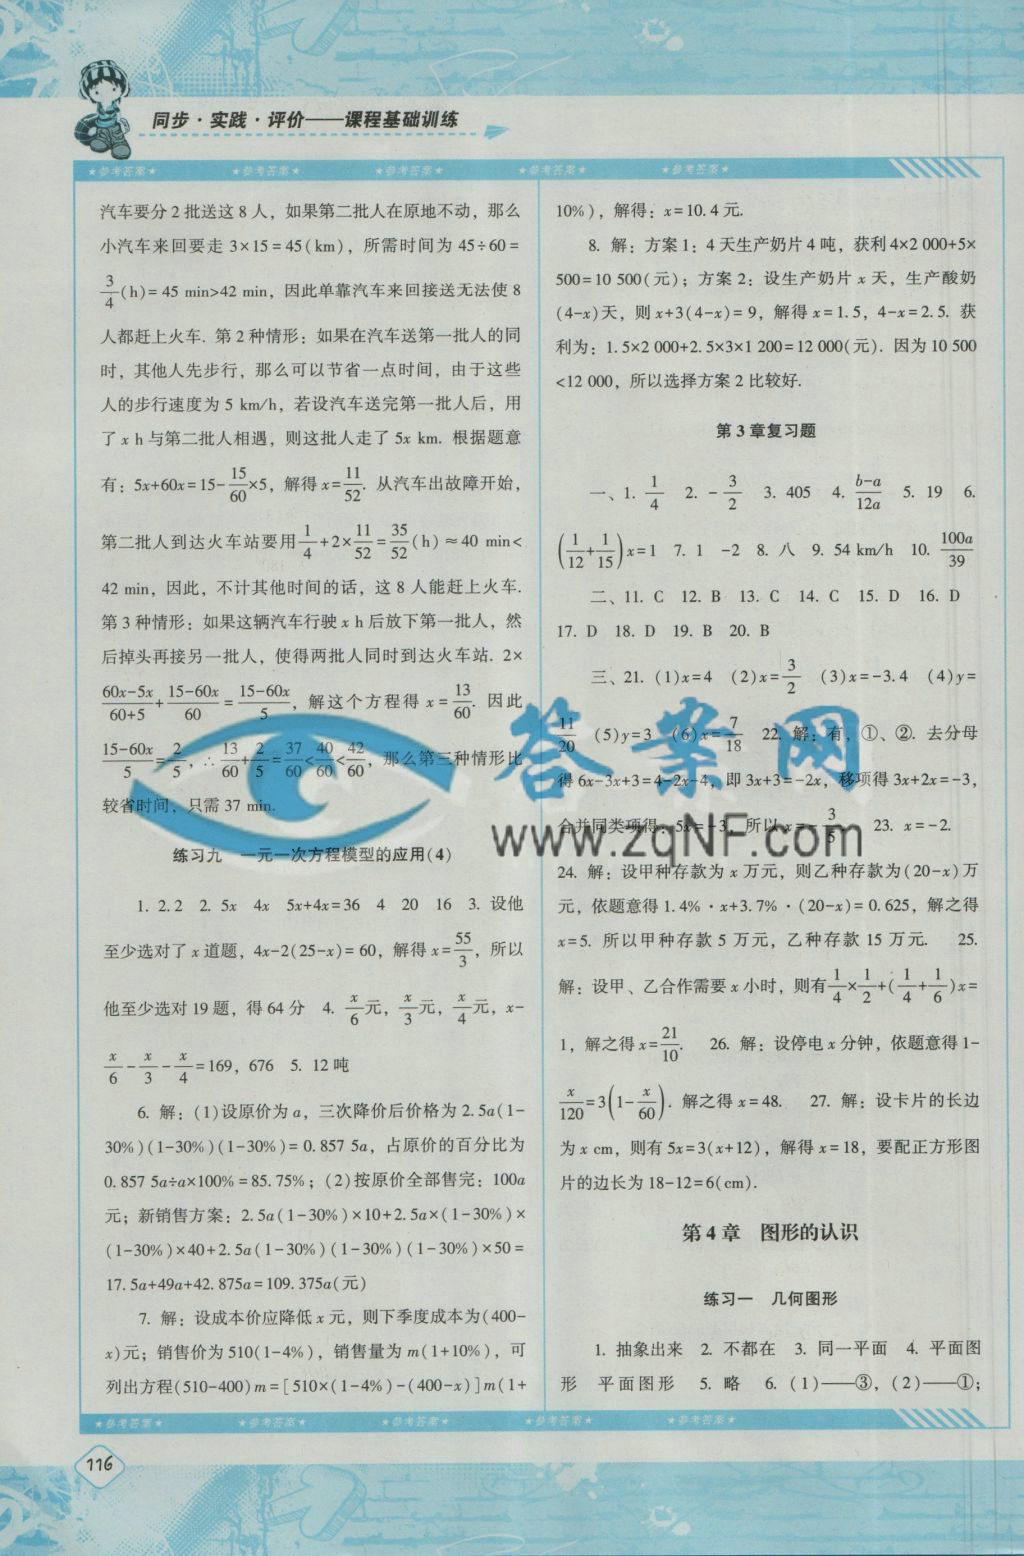 同步·实践·评价——课程基础训练
★参考答案★ ★参考答案★ ★参考答案★ ★参考答案★ ★参考答案★
汽车要分2批送这8人，如果第二批人在原地不动，那么
小汽车来回要走3×15=45(km)，所需时间为45÷60=
3/4(h)=45 min>42 min，因此单靠汽车来回接送无法使8
人都赶上火车. 第2种情形：如果在汽车送第一批人的同
时，其他人先步行，那么可以节省一点时间，由于这些
人的步行速度为5 km/h，若设汽车送完第一批人后，用
了x h与第二批人相遇，则这批人走了5x km. 根据题意
有：5x+60x=15-15/60×5，解得x=11/52. 从汽车出故障开始，
第二批人到达火车站要用1/4+2×11/52=35/52(h)≈40 min<
42 min，因此，不计其他时间的话，这8人能赶上火车.
第3种情形：如果这辆汽车行驶x h后放下第一批人，然
后掉头再接另一批人，使得两批人同时到达火车站. 2×
60x-5x/60+5+15-60x/60=15-60x/5，解这个方程得x=13/60. 因此
15-60x/5=2/5，∴13/60+2/5=37/60<40/60<42/60，那么第三种情形比
较省时间，只需37 min.
练习九 一元一次方程模型的应用(4)
1. 2.2 2. 5x 4x 5x+4x=36 4 20 16 3. 设他
至少选对了x道题，4x-2(25-x)=60，解得x=55/3，所以
他至少选对19题，得64分 4. x/6元，x/3元，x/4元，x-
x/6-x/3-x/4=169，676 5. 12吨
6. 解：(1)设原价为a，三次降价后价格为2.5a(1-
30%)(1-30%)(1-30%)=0.857 5a，占原价的百分比为
0.857 5a÷a×100%=85.75%；(2)按原价全部售完：100a
元；新销售方案：2.5a(1-30%)×10+2.5a×(1-30%)×
(1-30%)×40+2.5a(1-30%)(1-30%)(1-30%)×50=
17.5a+49a+42.875a=109.375a(元)
7. 解：设成本价应降低x元，则下季度成本为(400-
x)元；销售价为510(1-4%)，销售量为m(1+10%)，可
列出方程(510-400)m=[510×(1-4%)-(400-x)]m(1+
10%)，解得：x=10.4元.
8. 解：方案1：4天生产奶片4吨，获利4×2 000+5×
500=10 500(元)；方案2：设生产奶片x天，生产酸奶
(4-x)天，则x+3(4-x)=9，解得x=1.5，4-x=2.5. 获
利为：1.5×2 000+2.5×3×1 200=12 000(元). 因为10 500
<12 000，所以选择方案2比较好.
第3章复习题
一、1. 1/4 2. -3/2 3. 405 4. b-a/12a 5. 19 6.
(1/12+1/15)x=1 7. 1 -2 8. 八 9. 54 km/h 10. 100a/39
二、11. C 12. B 13. C 14. C 15. D 16. D
17. D 18. D 19. B 20. B
三、21. (1)x=4 (2)x=3/2 (3)x=-3.4 (4)y=
11/20 (5)y=3 (6)x=7/18 22. 解：有，①、②. 去分母
得6x-3x+3=4-2x-4，即3x+3=-2x，移项得3x+2x=-3，
合并同类项得：5x=-3，所以x=-3/5 23. x=-2.
24. 解：设甲种存款为x万元，则乙种存款为(20-x)万
元，依题意得1.4%·x+3.7%·(20-x)=0.625，解之得
x=5. 所以甲种存款5万元，乙种存款15万元. 25.
解：设甲、乙合作需要x小时，则有1/4×1/2+(1/4+1/6)x=
1，解之得x=21/10. 26. 解：设停电x分钟，依题意得1-
x/120=3(1-x/60). 解之得x=48. 27. 解：设卡片的长边
为x cm，则有5x=3(x+12)，解得x=18，要配正方形图
片的边长为18-12=6(cm).
第4章 图形的认识
练习一 几何图形
1. 抽象出来 2. 不都在 3. 同一平面 4. 平面图
形 平面图形 5. 略 6. (1)——③，(2)——①；
★参考答案★ ★参考答案★ ★参考答案★ ★参考答案★ ★参考答案★
116
答案网
www.zqNF.com